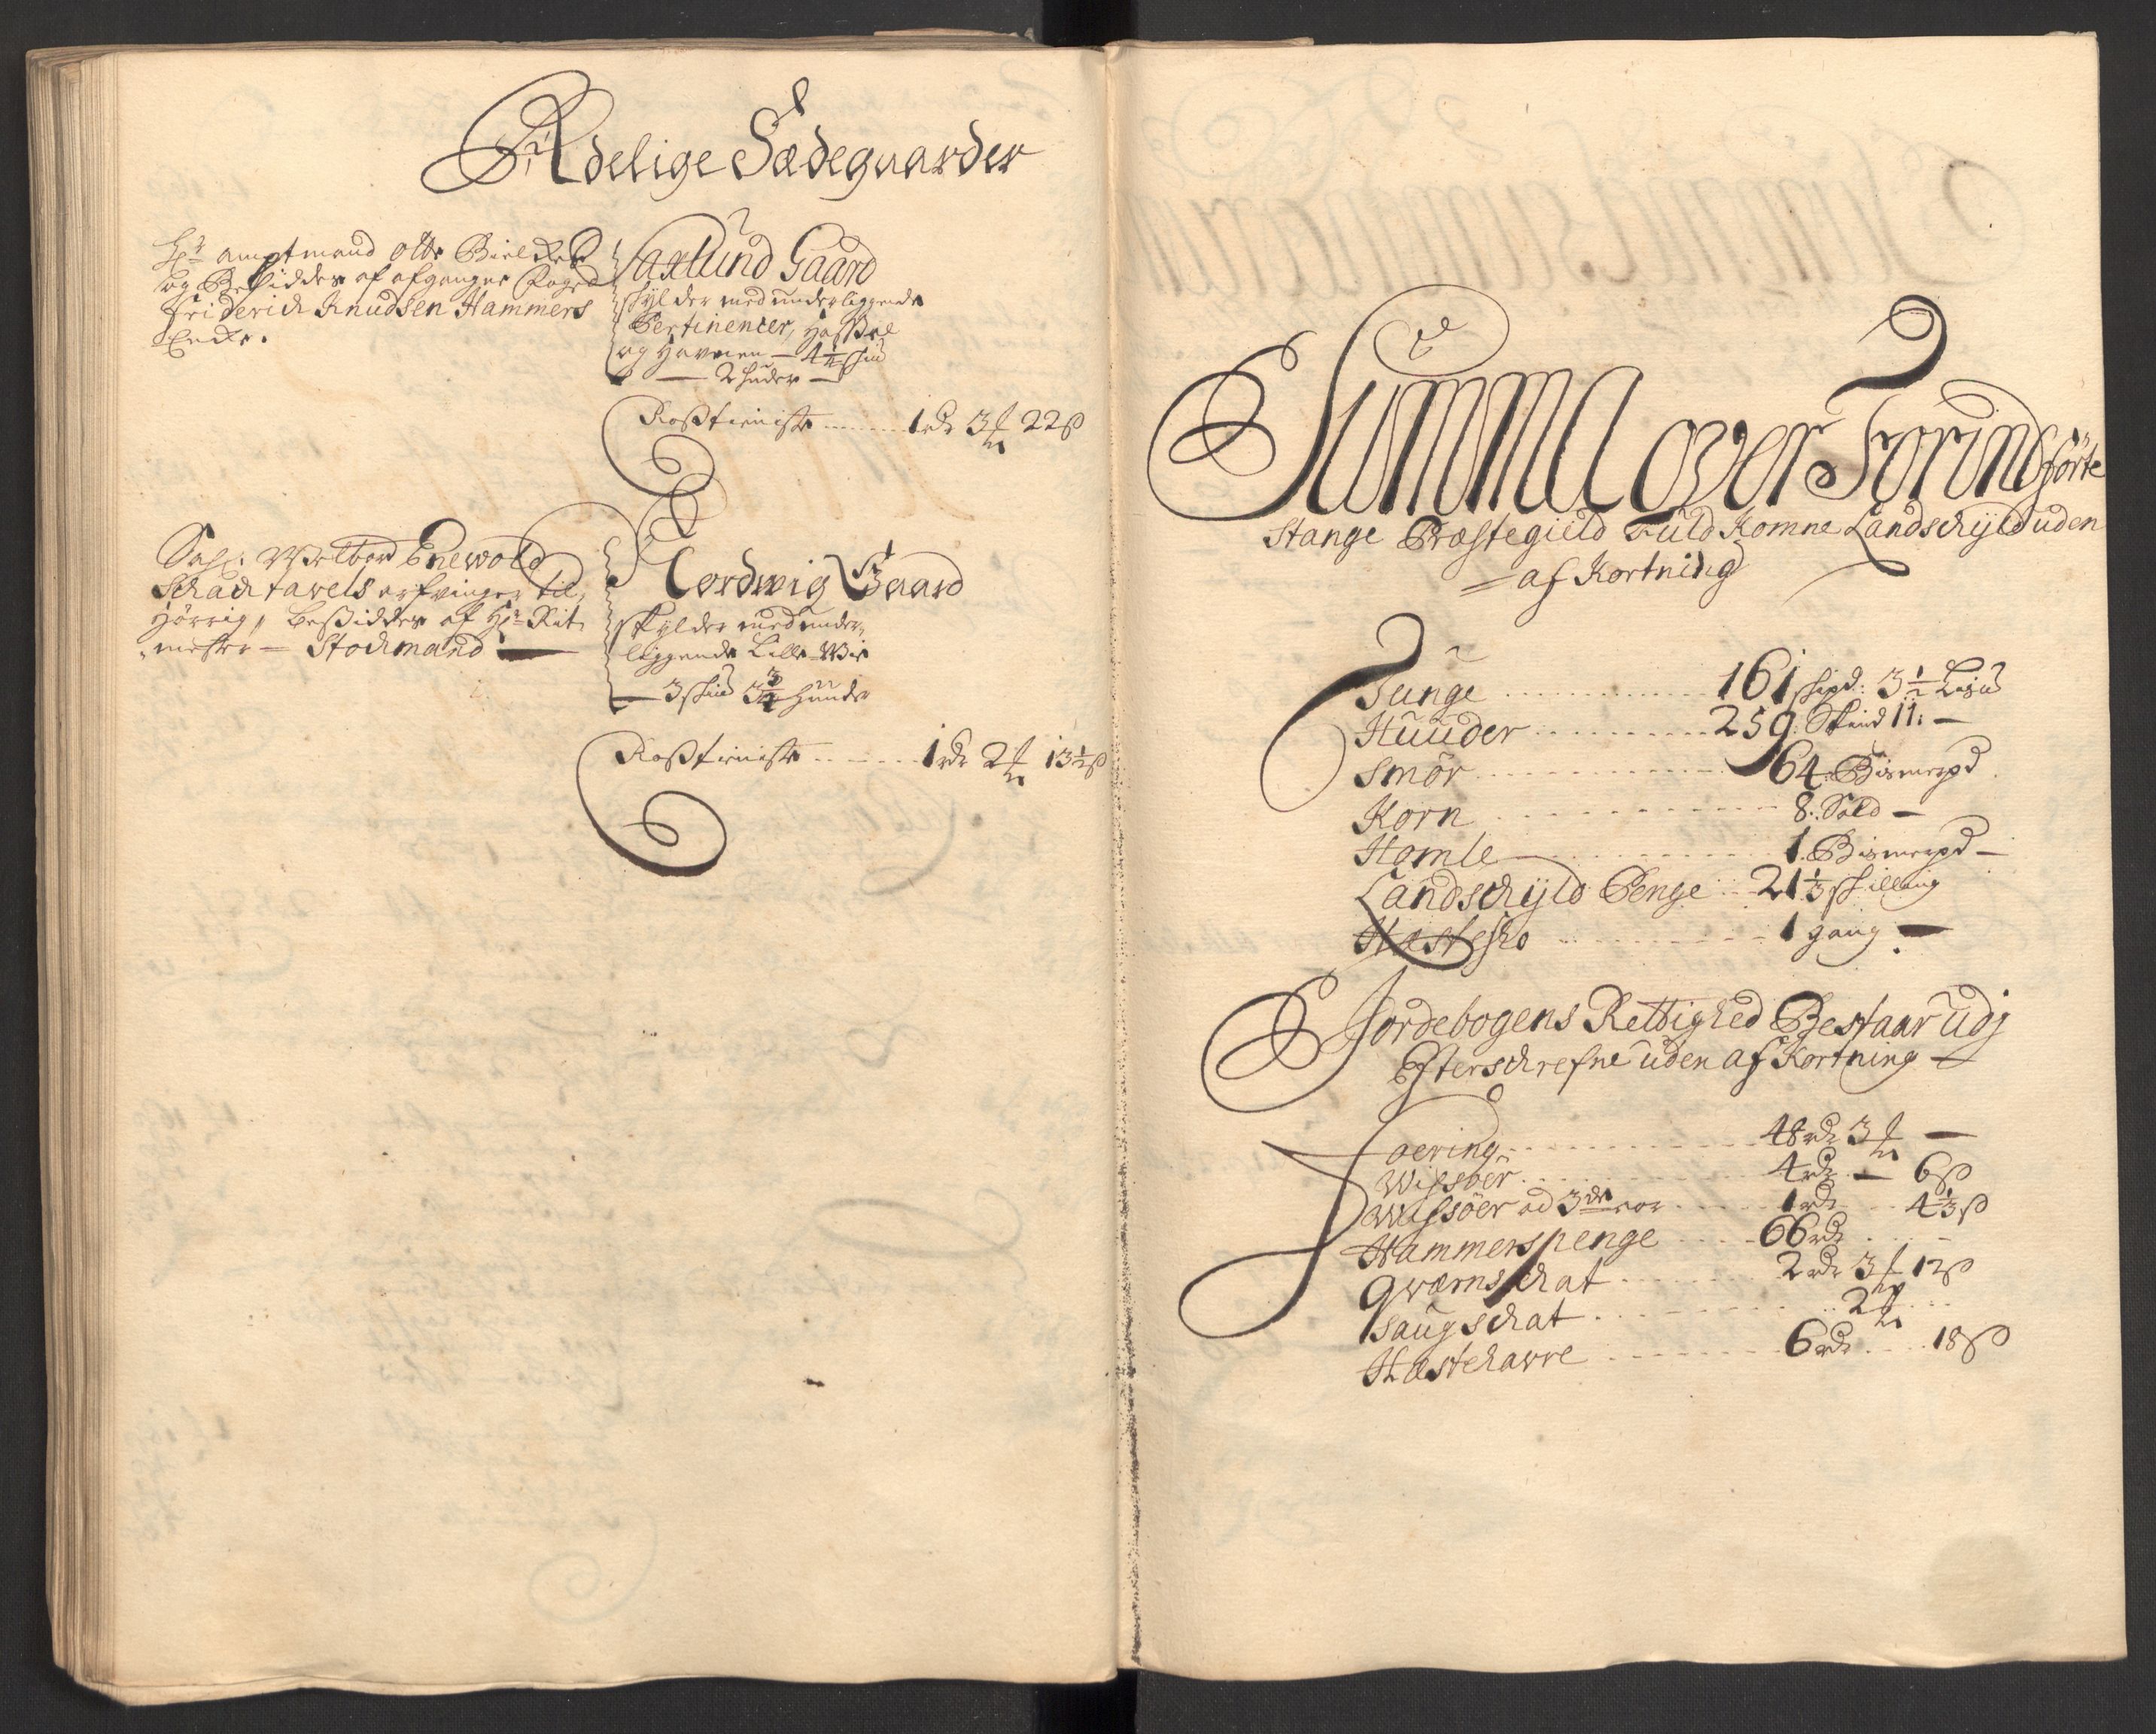 Adelige Sædegaarder
Hr. amptmand Otto Bielkes
og Besiddes af afgangne Foged
Friderich Knudsen Hammers
Encke.
Saxlund Gaard
skylder med underliggende
Pertinencer,
og Havnen — 4½ skind
— 2 huder —
Rosstieniste ...... 1 rdr 3 ort 22 s
Sal. Welbr. Enewold
Schachtavels arfvinger til
hörrig, beßiddes af Hr. Rit
mester — Stochmand —
Hordwig Gaard
skylder med under
liggende Lille Wie
— 3 skind 3¾ huuder
Rosstieniste ...... 1 rdr 2 ort 13½ s
Summa over Forindförte
Stange Præstegield Fuldkomne Landschyld uden
= af Kortning
Tunge ......... 161 skpd: 3½ Lispd
Huuder ......... 259. Skind 11. —
Smör ......... 64. Bismerpd
Korn ......... 8. Sold —
Homle ......... 1. Bismerpd —
Landschyld Penge ... 21⅓ skilling
Hestesko ......... 1 gang —
Jordebogens Rettighed Bestaar udj
Efterschrefne uden af Kortning —
Foering ......... 48 rdr 3 ort —
Wissöer ......... 4 rdr — 6 s
Wissöer ad 3de aar ...... 1 rdr ... 4⅓ s
Hammerspenge ...... 66 rdr ...
Qvernschat ...... 2 rdr 3 ort 12 s
Saugschat ......... 2 ort ...
Hæstehavre ...... 6 rdr ... 18 s